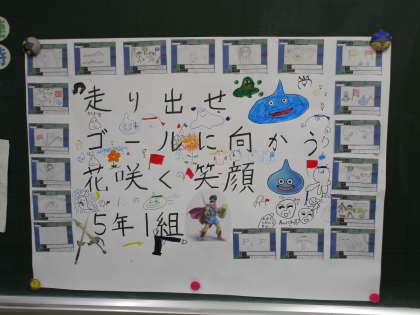 走り出せ
ゴールに向かう
花咲く笑顔
5年1組